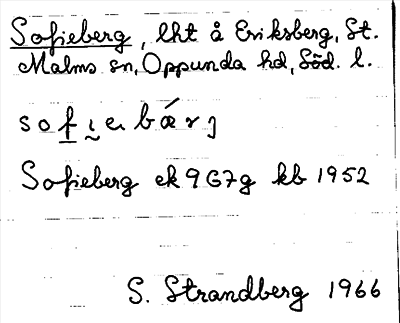 Sofieberg, lht å Eriksberg, St.
Malms sn, Oppunda hd, Söd. l.
Sofieberg ek 9G7g kb 1952
S. Strandberg 1966